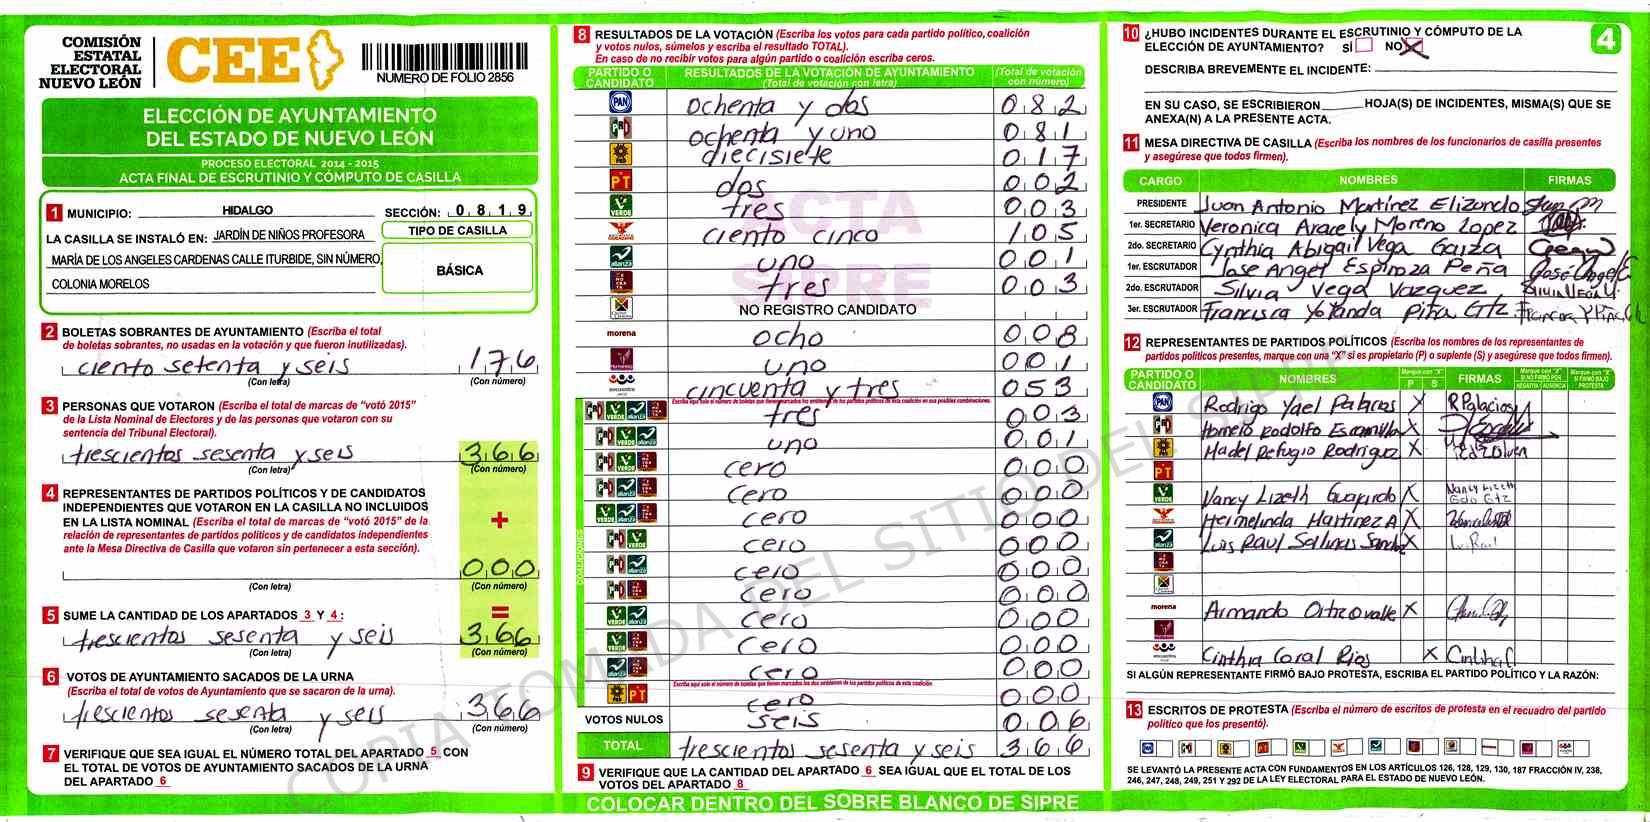 COMISIÓN
ESTATAL
ELECTORAL
NUEVO LEÓN
CEE
NUMERO DE FOLIO 2856
ELECCIÓN DE AYUNTAMIENTO
DEL ESTADO DE NUEVO LEÓN
PROCESO ELECTORAL 2014 - 2015
ACTA FINAL DE ESCRUTINIO Y CÓMPUTO DE CASILLA
1 MUNICIPIO: HIDALGO SECCIÓN: 0 8 1 9
LA CASILLA SE INSTALÓ EN: JARDÍN DE NIÑOS PROFESORA
MARÍA DE LOS ANGELES CARDENAS CALLE ITURBIDE, SIN NÚMERO,
COLONIA MORELOS
TIPO DE CASILLA
BÁSICA
2 BOLETAS SOBRANTES DE AYUNTAMIENTO (Escriba el total
de boletas sobrantes, no usadas en la votación y que fueron inutilizadas).
ciento setenta y seis 176
(Con letra) (Con número)
3 PERSONAS QUE VOTARON (Escriba el total de marcas de "votó 2015"
de la Lista Nominal de Electores y de las personas que votaron con su
sentencia del Tribunal Electoral).
trescientos sesenta y seis 366
(Con letra) (Con número)
4 REPRESENTANTES DE PARTIDOS POLÍTICOS Y DE CANDIDATOS
INDEPENDIENTES QUE VOTARON EN LA CASILLA NO INCLUIDOS
EN LA LISTA NOMINAL (Escriba el total de marcas de "votó 2015" de la
relación de representantes de partidos políticos y de candidatos independientes
ante la Mesa Directiva de Casilla que votaron sin pertenecer a esta sección).
+
000
(Con letra) (Con número)
=
5 SUME LA CANTIDAD DE LOS APARTADOS 3 Y 4 :
trescientos sesenta y seis 366
(Con letra) (Con número)
6 VOTOS DE AYUNTAMIENTO SACADOS DE LA URNA
(Escriba el total de votos de Ayuntamiento que se sacaron de la urna).
trescientos sesenta y seis 366
(Con letra) (Con número)
7 VERIFIQUE QUE SEA IGUAL EL NÚMERO TOTAL DEL APARTADO 5 CON
EL TOTAL DE VOTOS DE AYUNTAMIENTO SACADOS DE LA URNA
DEL APARTADO 6
8 RESULTADOS DE LA VOTACIÓN (Escriba los votos para cada partido político, coalición
y votos nulos, súmelos y escriba el resultado TOTAL).
En caso de no recibir votos para algún partido o coalición escriba ceros.
PARTIDO O CANDIDATO RESULTADOS DE LA VOTACIÓN DE AYUNTAMIENTO (Total de votación con letra) (Total de votación con número)
PAN ochenta y dos 082
PRI ochenta y uno 081
PRD diecisiete 017
PT dos 002
VERDE tres 003
ciento cinco 105
alianza uno 001
tres 003
NO REGISTRO CANDIDATO
morena ocho 008
uno 001
encuentro cincuenta y tres 053
tres 003
uno 001
cero 000
cero 000
cero 000
cero 000
cero 000
cero 000
cero 000
cero 000
cero 000
PRD PT cero 000
VOTOS NULOS seis 006
TOTAL trescientos sesenta y seis 366
COALICIONES
ACTA
SIPRE
9 VERIFIQUE QUE LA CANTIDAD DEL APARTADO 6 SEA IGUAL QUE EL TOTAL DE LOS
VOTOS DEL APARTADO 8
COLOCAR DENTRO DEL SOBRE BLANCO DE SIPRE
10 ¿HUBO INCIDENTES DURANTE EL ESCRUTINIO Y CÓMPUTO DE LA
ELECCIÓN DE AYUNTAMIENTO? SÍ NO X
4
DESCRIBA BREVEMENTE EL INCIDENTE:
EN SU CASO, SE ESCRIBIERON HOJA(S) DE INCIDENTES, MISMA(S) QUE SE
ANEXA(N) A LA PRESENTE ACTA.
11 MESA DIRECTIVA DE CASILLA (Escriba los nombres de los funcionarios de casilla presentes
y asegúrese que todos firmen).
CARGO NOMBRES FIRMAS
PRESIDENTE Juan Antonio Martínez Elizondo
1er. SECRETARIO Veronica Aracely Moreno Lopez
2do. SECRETARIO Cynthia Abigail Vega Garza
1er. ESCRUTADOR Jose Angel Espinoza Peña
2do. ESCRUTADOR Silvia Vega Vazquez
3er. ESCRUTADOR Francisca Yolanda Piña Gtz.
12 REPRESENTANTES DE PARTIDOS POLÍTICOS (Escriba los nombres de los representantes de
partidos políticos presentes, marque con una "X" si es propietario (P) o suplente (S) y asegúrese que todos firmen).
PARTIDO O CANDIDATO NOMBRES Marque con "X" P S FIRMAS Marque con "X" SI NO FIRMÓ POR NEGATIVA AUSENCIA Marque con "X" SI FIRMÓ BAJO PROTESTA
PAN Rodrigo Yael Palacios X R Palacios
PRI Homero Rodolfo Escamilla X
PRD Ma del Refugio Rodriguez X
PT
VERDE Nancy Lizeth Guajardo X Nancy Lizeth Gdo Gtz
Hermelinda Martinez A X
alianza Luis Raul Salinas X
morena Armando X
encuentro Cinthia Coral Rios X
SI ALGÚN REPRESENTANTE FIRMÓ BAJO PROTESTA, ESCRIBA EL PARTIDO POLÍTICO Y LA RAZÓN:
13 ESCRITOS DE PROTESTA (Escriba el número de escritos de protesta en el recuadro del partido
político que los presentó).
SE LEVANTÓ LA PRESENTE ACTA CON FUNDAMENTOS EN LOS ARTÍCULOS 126, 128, 129, 130, 187 FRACCIÓN IV, 238,
246, 247, 248, 249, 251 Y 292 DE LA LEY ELECTORAL PARA EL ESTADO DE NUEVO LEÓN.